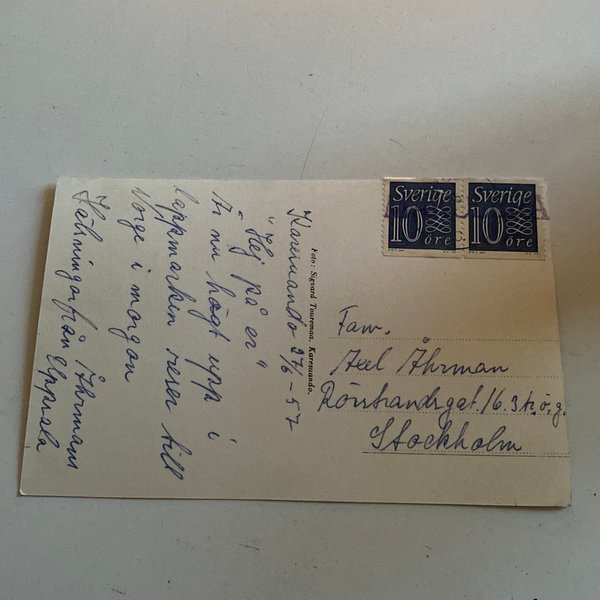 Karesuando 27/6-57
"Hej på er"
Är nu högt upp i
lappmarken reser till
Norge i morgon
Hälsningar från Åhrmans
Uppsala
Foto: Sigvard Touremaa, Karesuando.
Sverige
10
öre
Sverige
10
öre
Fam.
Axel Åhrman
Rörstrandsgat. 16. 3 tr. ö. g.
Stockholm